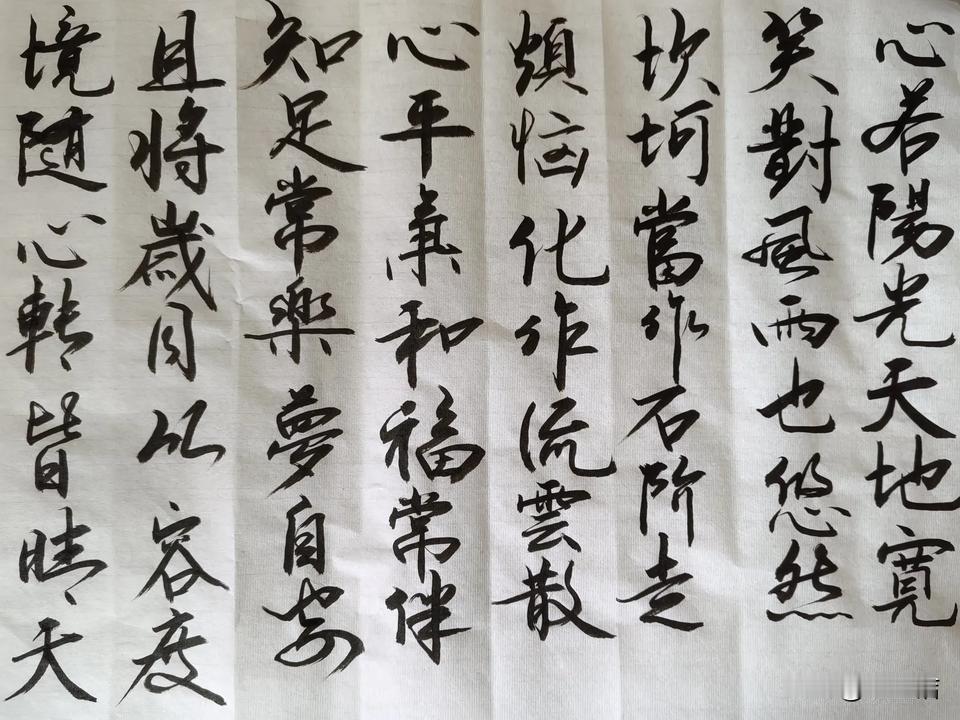 心若陽光天地寬
笑對風雨也悠然
坎坷當作石阶走
煩恼化作流雲散
心平氣和福常伴
知足常樂夢自安
且将歲月从容度
境随心轉皆晴天